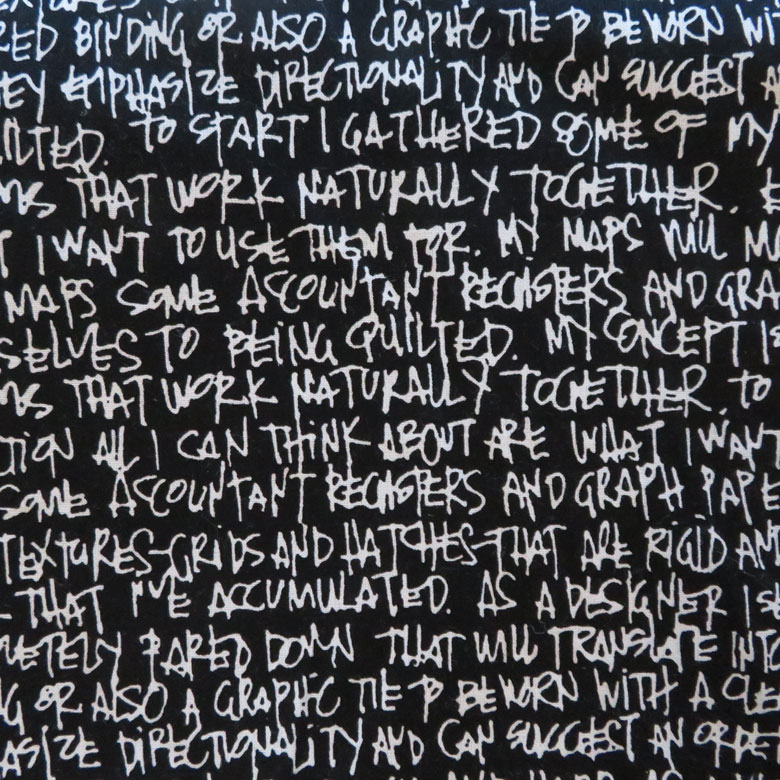 TEXTURES
RED BINDING OR ALSO A GRAPHIC TIE TO BE WORN WIT
EY EMPHASIZE DIRECTIONALITY AND CAN SUGGEST A
ILTED. TO START I GATHERED SOME OF MY
MS THAT WORK NATURALLY TOGETHER.
T I WANT TO USE THEM FOR. MY MAPS WILL
MAPS SOME ACCOUNTANT REGISTERS AND GRA
SELVES TO BEING QUILTED. MY CONCEPT IS
MS THAT WORK NATURALLY TOGETHER. TO
TION ALL I CAN THINK ABOUT ARE WHAT I WANT
SOME ACCOUNTANT REGISTERS AND GRAPH PAPE
TEXTURES-GRIDS AND HATCHES-THAT ARE RIGID AND
THAT I'VE ACCUMULATED. AS A DESIGNER IS
LETELY PARED DOWN THAT WILL TRANSLATE INTO
NG OR ALSO A GRAPHIC TIE TO BE WORN WITH A CLE
ASIZE DIRECTIONALITY AND CAN SUGGEST AN ORDE